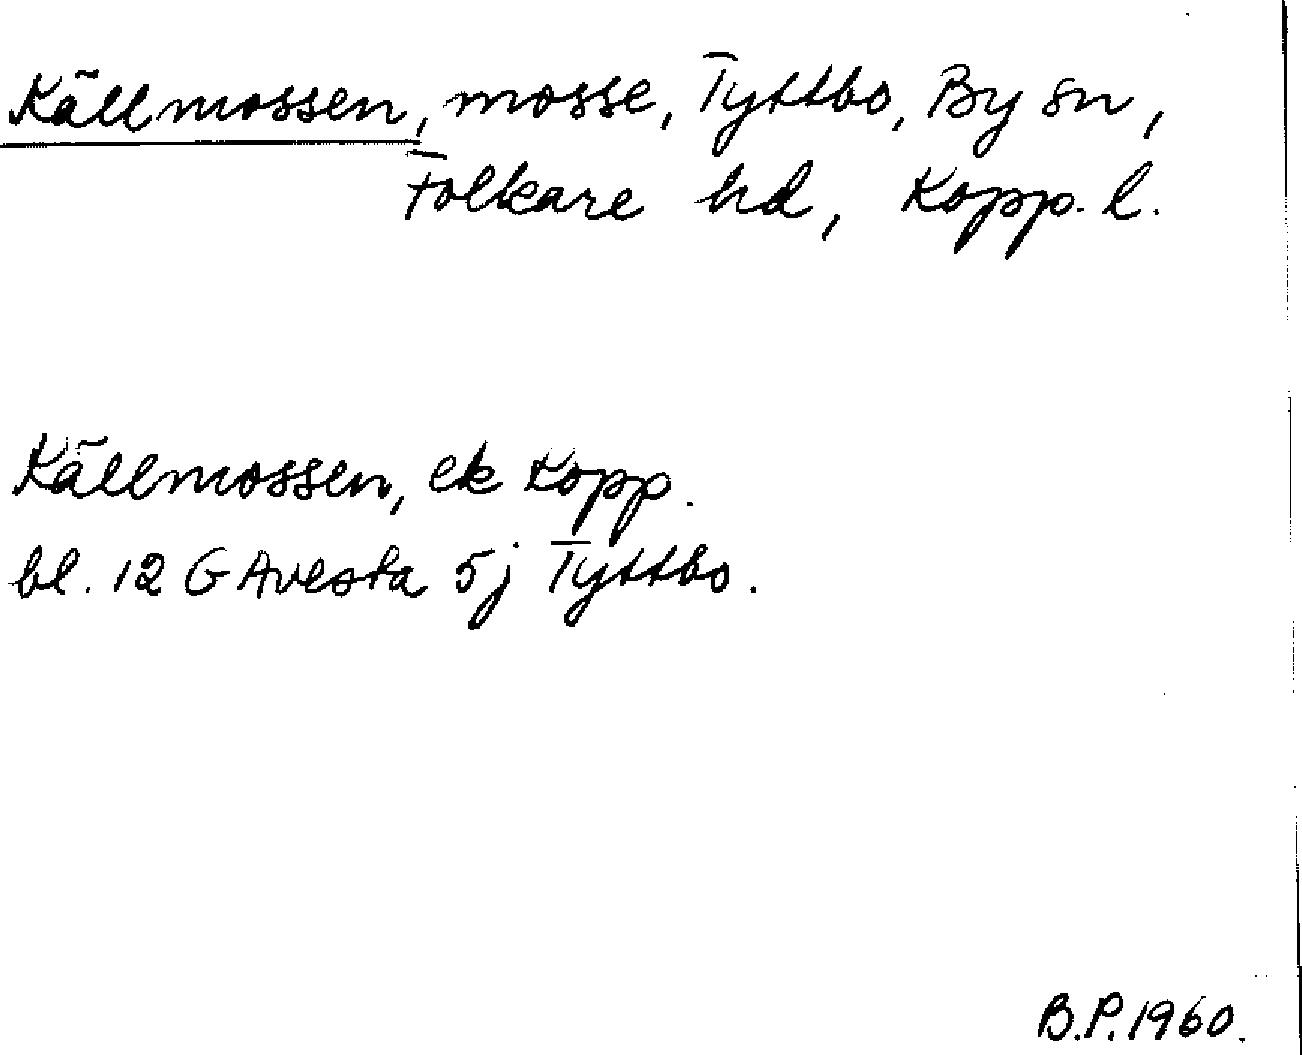 Källmossen, mosse, Tyttbo, By sn,
Folkare hd, Kopp. l.
Källmossen, ek Kopp.
bl. 12 G Avesta 5j Tyttbo.
B.P. 1960.